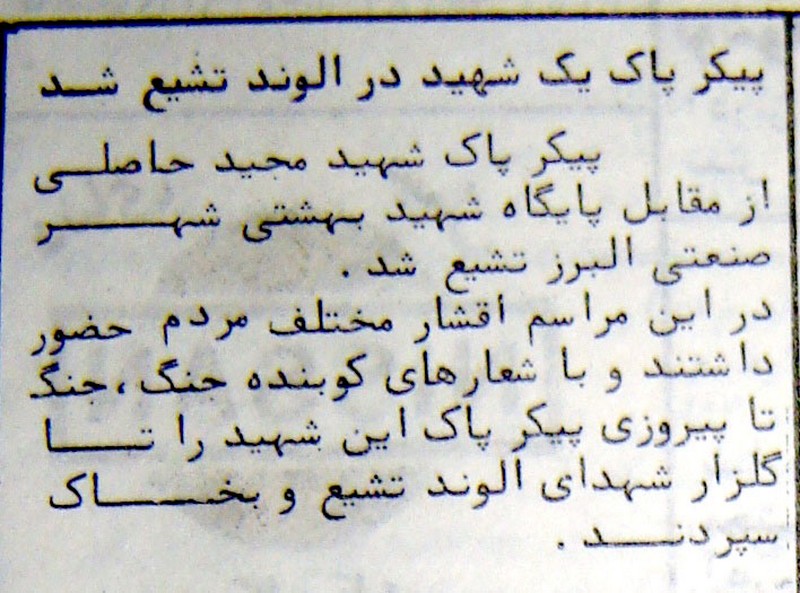 پیکر پاک یک شهید در الوند تشیع شد
پیکر پاک شهید مجید حاصلی
از مقابل پایگاه شهید بهشتی شهر
صنعتی البرز تشیع شد.
در این مراسم اقشار مختلف مردم حضور
داشتند و با شعارهای کوبنده جنگ، جنگ
تا پیروزی پیکر پاک این شهید را تا
گلزار شهدای الوند تشیع و بخاک
سپردند.